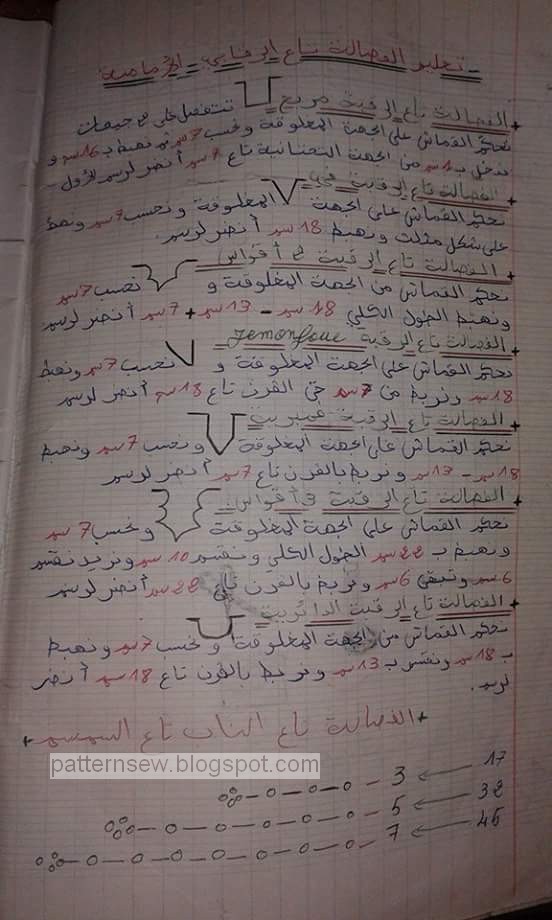 - تعليم الفصالة تاع الرقابي - الأمامية -
+ الفصالة تاع الرقبة مربع تتفصل على جيهات
نحكم القماش على الجهة المغلوقة ونحسب 7سم ونهبط ب 16سم و
ندخل ب 1سم من الجهة التحتانية تاع 7سم أنضر لرسم الأول -
+ الفصالة تاع الرقبة في
نحكم القماش على الجهة المغلوقة ونحسب 7سم ونهبط
على شكل مثلث ونهبط 18سم أنضر لرسم.
+ الفصالة تاع الرقبة في أقواس
نحكم القماش من الجهة المغلوقة و نحسب 7سم
ونهبط الطول الكلي 18سم - 13سم + 7سم أنضر لرسم
+ الفصالة تاع الرقبة Jemonfoue
نحكم القماش على الجهة المغلوقة و نحسب 7سم ونهبط
18سم ونربط من 7سم حتى القرن تاع 18سم أنضر لرسم
+ الفصالة تاع الرقبة
نحكم القماش على الجهة المغلوقة ونحسب 7سم ونهبط
18سم - 13سم ونربط بالقرن تاع 7سم أنضر لرسم
+ الفصالة تاع الرقبة في أقواس.
نحكم القماش على الجهة المغلوقة ونحسب 7سم
ونهبط ب 22سم الطول الكلي ونقسم 10سم ونزيد نقسم
6سم وتبقى 6سم ونربط بالقرن تاع 22سم أنضر لرسم
+ الفصالة تاع الرقبة الدائرية
نحكم القماش من الجهة المغلوقة ونحسب 7سم ونهبط
ب 18سم ونقسم ب 13سم ونربط بالقرن تاع 18سم أنضر
لرسم.
+ الفصالة تاع الناب تاع السمسم +
patternsew.blogspot.com
3 ← 17
5 ← 32
7 ← 45